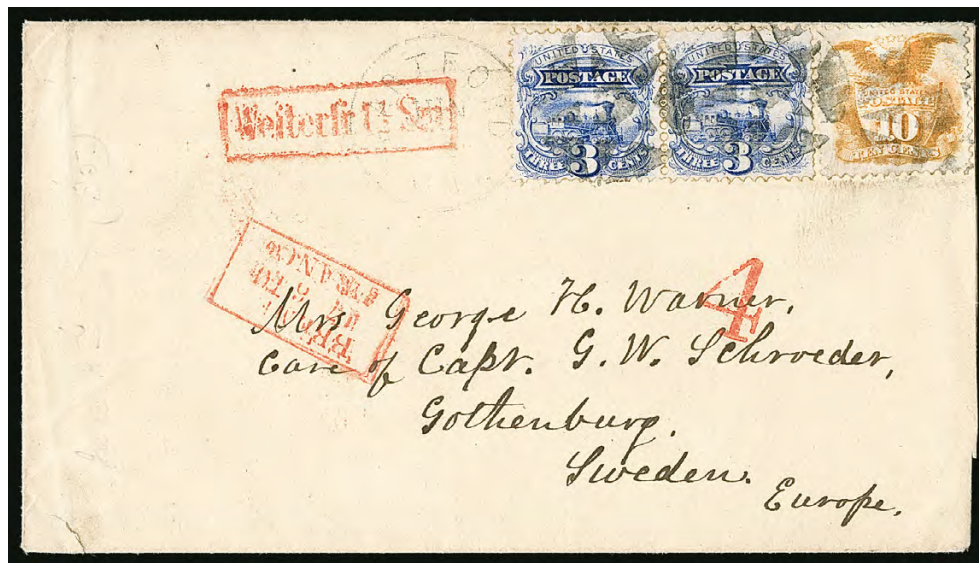 UNITED STATES
POSTAGE
THREE 3 CENTS
UNITED STATES
POSTAGE
THREE 3 CENTS
UNITED STATES
POSTAGE
10
TEN CENTS
Weiterfr 1½
FRANCO
4
Mrs George H. Warner,
Care of Capt. G. W. Schroeder,
Gothenburg.
Sweden.
Europe.